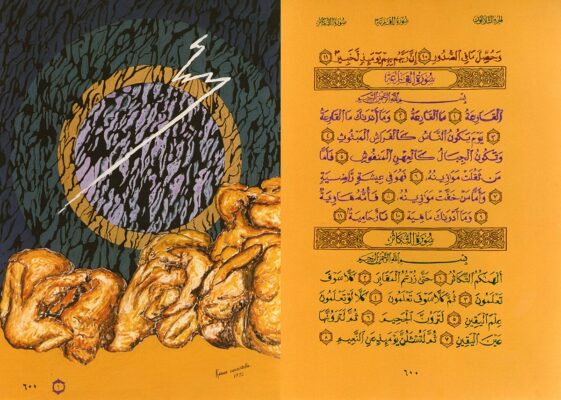 الجزء الثلاثون
سورة القارعة
سورة التكاثر
وَحُصِّلَ مَا فِي الصُّدُورِ ١٠ إِنَّ رَبَّهُم بِهِمْ يَوْمَئِذٍ لَّخَبِيرٌ ١١
سُورَةُ القَارِعَةِ
بِسْمِ اللهِ الرَّحْمٰنِ الرَّحِيمِ
القَارِعَةُ ١ مَا القَارِعَةُ ٢ وَمَا أَدْرَىٰكَ مَا القَارِعَةُ
٣ يَوْمَ يَكُونُ النَّاسُ كَالفَرَاشِ المَبْثُوثِ ٤
وَتَكُونُ الجِبَالُ كَالعِهْنِ المَنفُوشِ ٥ فَأَمَّا
مَن ثَقُلَتْ مَوَٰزِينُهُ ٦ فَهُوَ فِي عِيشَةٍ رَّاضِيَةٍ
٧ وَأَمَّا مَنْ خَفَّتْ مَوَٰزِينُهُ ٨ فَأُمُّهُ هَاوِيَةٌ
٩ وَمَا أَدْرَىٰكَ مَا هِيَهْ ١٠ نَارٌ حَامِيَةٌ ١١
سُورَةُ التَّكَاثُرِ
بِسْمِ اللهِ الرَّحْمٰنِ الرَّحِيمِ
أَلْهَىٰكُمُ التَّكَاثُرُ ١ حَتَّىٰ زُرْتُمُ المَقَابِرَ ٢ كَلَّا سَوْفَ
تَعْلَمُونَ ٣ ثُمَّ كَلَّا سَوْفَ تَعْلَمُونَ ٤ كَلَّا لَوْ تَعْلَمُونَ
عِلْمَ اليَقِينِ ٥ لَتَرَوُنَّ الجَحِيمَ ٦ ثُمَّ لَتَرَوُنَّهَا
عَيْنَ اليَقِينِ ٧ ثُمَّ لَتُسْئَلُنَّ يَوْمَئِذٍ عَنِ النَّعِيمِ ٨
٦٠٠
٦٠١